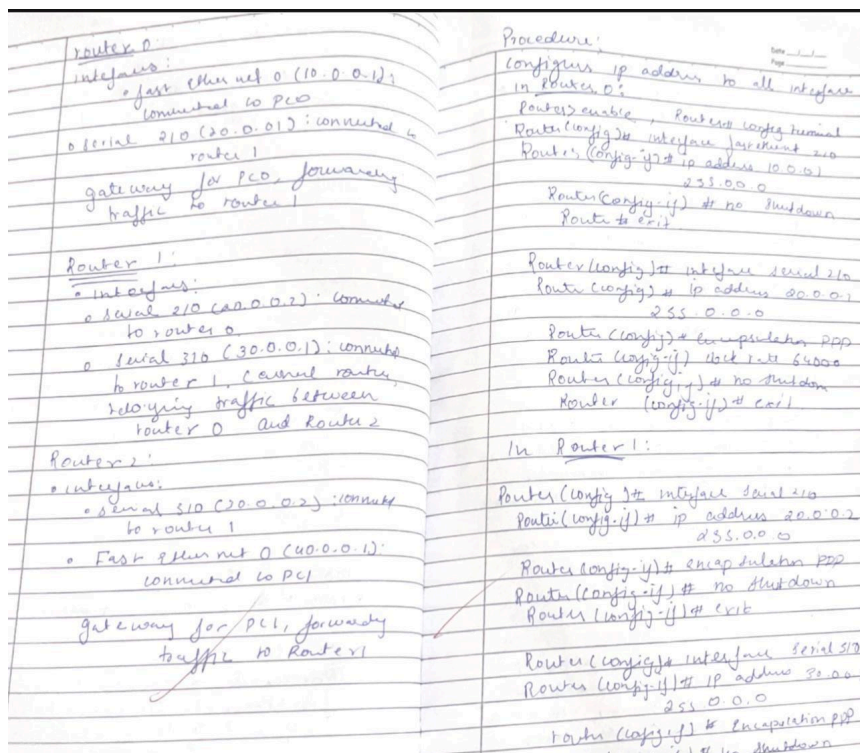 router 0
interfaces:
• fast ether net 0 (10.0.0.1):
connected to PC0
o serial 2/0 (20.0.01): connected to
router 1
gateway for PC0, forwarding
traffic to router 1
Router 1:
• interfaces:
o serial 2/0 (20.0.0.2): connected
to router 0
o serial 3/0 (30.0.0.1): connected
to router 1, router,
relaying traffic between
router 0 and Router 2
Router 2:
• interfaces:
• serial 3/0 (20.0.0.2): connected
to router 1
• Fast ether net 0 (40.0.0.1):
connected to PC1
gateway for PC1, forwarding
traffic to Router 1
Date
Page
Procedure:
Configure ip address to all interface
in Router 0:
Router> enable, Router# config terminal
Router(config)# interface fastethernet 2/0
Router (config-if)# ip address 10.0.01
255.0.0.0
Router(config-if) # no shutdown
Route # exit
Router (config)# inteface serial 2/0
Route (config) # ip address 20.0.0.
255.0.0.0
Router (config)# encapsulation PPP
Router (config-if) clock rate 64000
Router (config-if)# no shutdown
Router (config-if)# exit
In Router 1:
Router (config)# interface serial 2/0
Router (config-if)# ip address 20.0.0.2
255.0.0.0
Router (config-if)# encapsulation PPP
Router (config-if)# no shutdown
Router (config-if)# exit
Router (config)# interface serial 3/0
Router (config-if)# ip address 30.0.0
255 0.0.0
router (config-if) # Encapsulation PPP
# no shutdown